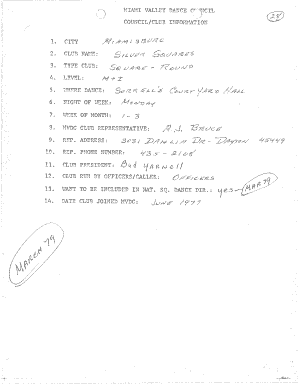 MIAMI VALLEY DANCE COUNCIL
COUNCIL/CLUB INFORMATION
28
1. CITY MIAMISBURG
2. CLUB NAME: SILVER SQUARES
3. TYPE CLUB: SQUARE - ROUND
4. LEVEL: M+I
5. WHERE DANCE: SORRELL'S COURT YARD HALL
6. NIGHT OF WEEK: MONDAY
7. WEEK OF MONTH: 1-3
8. MVDC CLUB REPRESENTATIVE: A.J. BRUCE
9. REP. ADDRESS: DAYTON 45449
10. REP. PHONE NUMBER: 435-2108
11. CLUB PRESIDENT: Bud YARNELL
12. CLUB RUN BY OFFICERS/CALLER: OFFICERS
13. WANT TO BE INCLUDED IN NAT. SQ. DANCE DIR.: yes - MAR 79
14. DATE CLUB JOINED MVDC: JUNE 1977
MARCH 79